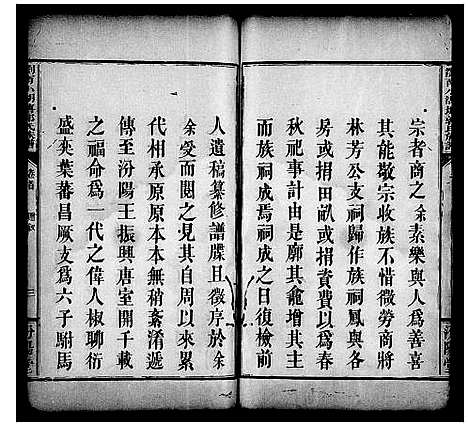 宗者商之余余素樂與人爲善喜
其能敬宗收族不惜微勞商將
林芳公支祠歸作族祠鳳與各
房或捐田畝或捐貲費以爲春
秋祀事計由是廓其龕增其式
而族祠成焉祠成之日復檢前
人遺稿纂修譜牒且徵序於余
余受而閱之見其自周以來累
代相承原原本本無稍紊淆遞
傳至汾陽王振興唐室開千載
之福命爲一代之偉人椒聊衍
盛奕葉蕃昌厥支爲六子駙馬